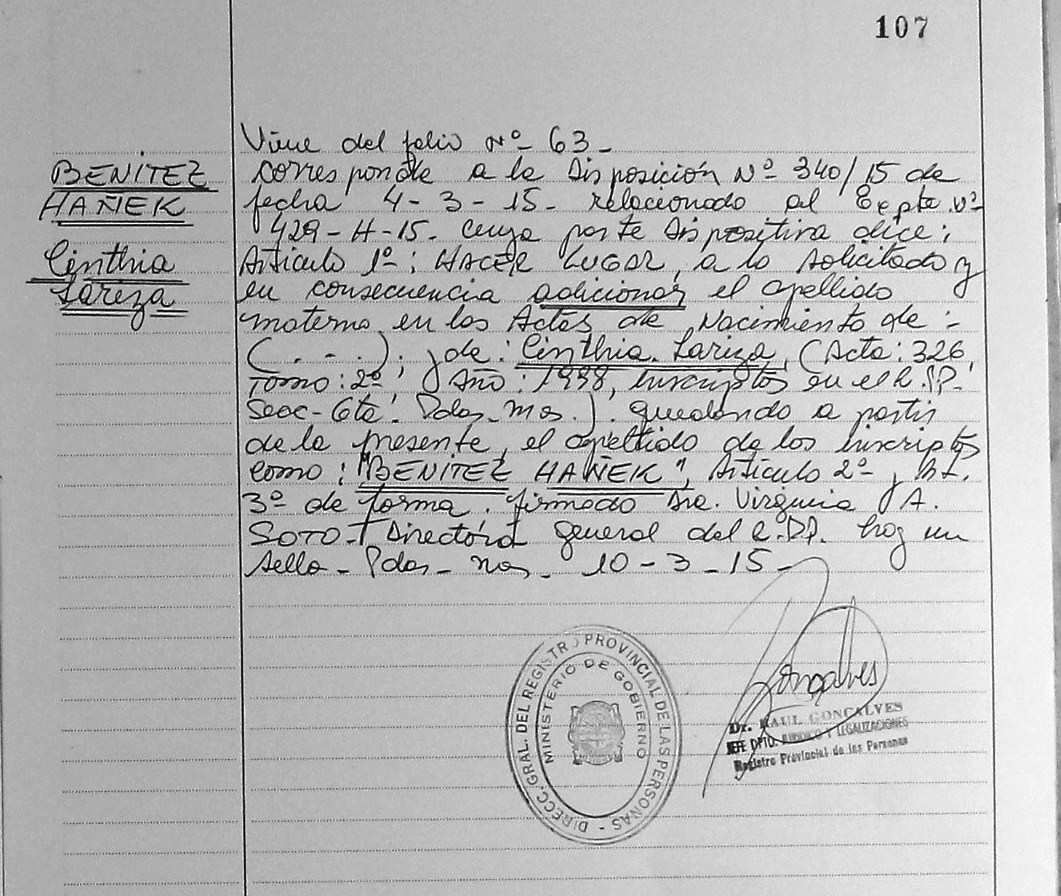 107
BENITEZ
HAÑEK
Cinthia
Lariza
Viene del folio Nº 63_
corresponde a la Disposición Nº 340/15 de
fecha 4-3-15- relacionado al Expte. Nº
429-H-15- cuya parte dispositiva dice:
Artículo 1º: HACER LUGAR, a lo solicitado y
en consecuencia adicionar el apellido
materno, en las Actas de Nacimiento de:-
(...), y de: Cinthia Lariza, (Acta: 326,
Tomo: 2º, Año: 1998, inscriptos en el R.P.P.
Secc-6ta. Pdas. Mns.). quedando a partir
de la presente, el apellido de los inscriptos
como: "BENITEZ HAÑEK", Artículo 2º y Art.
3º de forma. firmado Dra. Virginia A.
SOTO-Directora general del R.P.P. hay un
sello- Pdas- Mns- 10-3-15-
Gonçalves
Dr. RAUL GONCALVES
JEFE DPTO. JURIDICO Y LEGALIZACIONES
Registro Provincial de las Personas
DIRECC. GRAL. DEL REGISTRO PROVINCIAL DE LAS PERSONAS -
MINISTERIO DE GOBIERNO